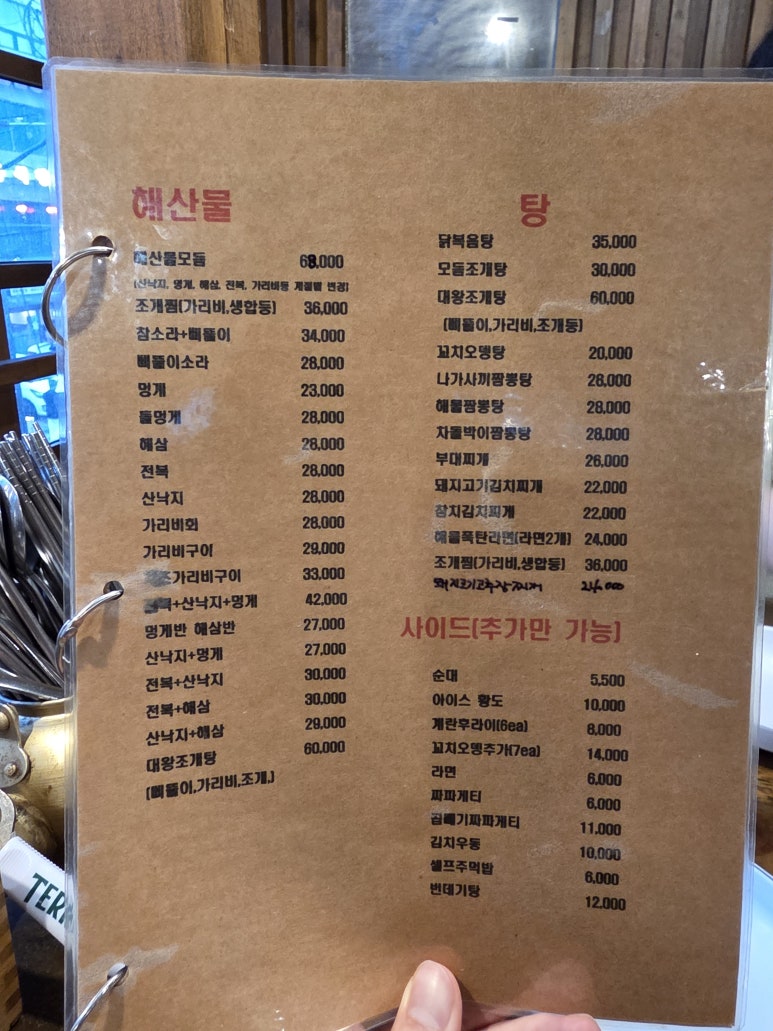 해산물
해산물모듬 68,000
(산낙지, 멍게, 해삼, 전복, 가리비등 계절별 변경)
조개찜(가리비,생합등) 36,000
참소라+삐뚤이 34,000
삐뚤이소라 28,000
멍게 23,000
돌멍게 28,000
해삼 28,000
전복 28,000
산낙지 28,000
가리비회 28,000
가리비구이 29,000
가리비구이 33,000
+산낙지+멍게 42,000
멍게반 해삼반 27,000
산낙지+멍게 27,000
전복+산낙지 30,000
전복+해삼 30,000
산낙지+해삼 29,000
대왕조개탕 60,000
(삐뚤이,가리비,조개,)
탕
닭복음탕 35,000
모듬조개탕 30,000
대왕조개탕 60,000
(삐뚤이,가리비,조개등)
꼬치오뎅탕 20,000
나가사끼짬뽕탕 28,000
해물짬뽕탕 28,000
차돌박이짬뽕탕 28,000
부대찌개 26,000
돼지고기김치찌개 22,000
참치김치찌개 22,000
해물폭탄라면(라면2개) 24,000
조개찜(가리비,생합등) 36,000
돼지고기고추장찌개 24,000
사이드(추가만 가능)
순대 5,500
아이스 황도 10,000
계란후라이(6ea) 8,000
꼬치오뎅추가(7ea) 14,000
라면 6,000
짜파게티 6,000
곱빼기짜파게티 11,000
김치우동 10,000
셀프주먹밥 6,000
번데기탕 12,000